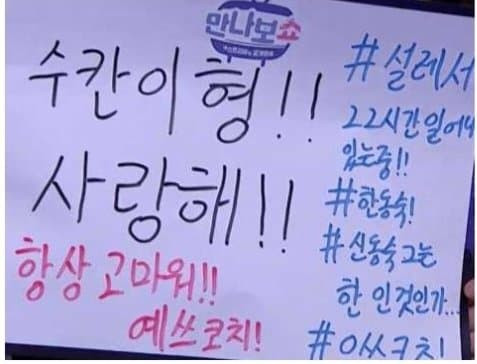 만나보쇼
수칸이형!!
사랑해!!
항상 고마워!!
예쓰코치!
#설레서
22시간 일어나
있는중!!
#한동숙!
#신동숙 그는
한 인것인가...